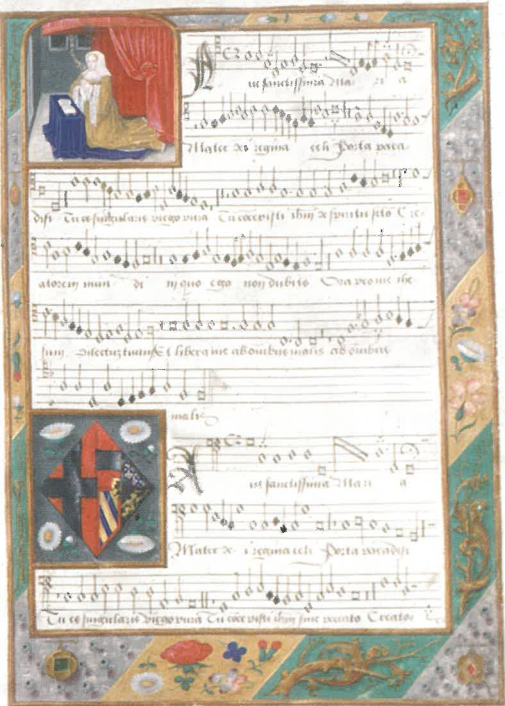 Ave sanctissima Mari a
Mater de i regina celi Porta para
disi Tu es singularis virgo pura Tu concepisti ihm de spiritu scto Cre
atorem mun di in quo ego non dubito Ora pro me ihe
sum dilectum tuum Et libera me ab omnibus malis ab omnibus
malis
Ave sanctissima Mari a
Mater de i regina celi Porta paradisi
Tu es singularis virgo pura Tu concepisti ihm sine peccato Creato